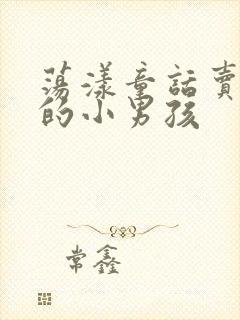 蕩漾童話賣
的小男孩
常鑫